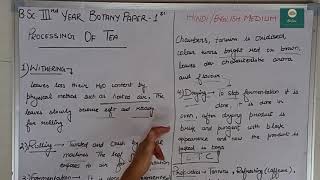 B.Sc IIIrd YEAR BOTANY PAPER - 1st
PROCESSING OF TEA
1) WITHERING
leaves loss their H2O content by
physical method such as heated air. The
leaves slowly become soft and ready
for rolling.
2) Rolling → Twisted and Crush by
machines. The leaf
exposes to air for
3) Fermentation
HINDI/ENGLISH MEDIUM
Chambers, tannin is oxidised,
colour turns bright red or brown,
leaves dev characteristic aroma
and flavour.
4) Drying → To stop fermentation it is
done, it is done in
oven, after drying product is
and pungent with black
appearance and now the product is
packed in bags
Tannins,